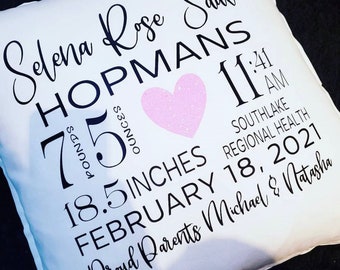 Selena Rose
HOPMANS
7 POUNDS 5 OUNCES
11:41 AM
18.5 INCHES
SOUTHLAKE
REGIONAL HEALTH
FEBRUARY 18, 2021
Proud Parents Michael & Natasha